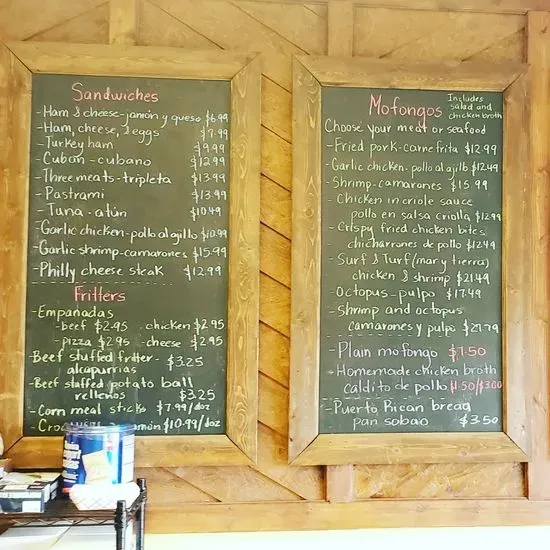 Sandwiches
- Ham & cheese - jamón y queso $6.99
- Ham, cheese, & eggs $7.99
Turkey ham $9.99
- Cuban - cubano $12.99
- Three meats - tripleta $13.99
- Pastrami $13.99
- Tuna - atún $10.49
- Garlic chicken - pollo al ajillo $10.99
- Garlic shrimp - camarones $15.99
- Philly cheese steak $12.99
Fritters
- Empañadas
- beef $2.95 . chicken $2.95
- pizza $2.95 - cheese $2.95
- Beef stuffed fritter -
alcapurrias $3.25
- Beef stuffed potato ball
rellenos $3.25
- Corn meal sticks $7.99/doz
- $10.99/doz
Mofongos Includes salad and chicken broth
Choose your meat or seafood
- Fried pork - carne frita $12.99
- Garlic chicken - pollo al ajillo $12.49
- Shrimp - camarones $15.99
- Chicken in criole sauce
pollo en salsa criolla $12.99
- Crispy fried chicken bites
chicharrones de pollo $12.49
- Surf & Turf (mar y tierra)
chicken & shrimp $21.49
- Octopus - pulpo $17.49
- Shrimp and octopus
camarones y pulpo
- Plain mofongo $7.50
- Homemade chicken broth
caldito de pollo $1.50/$3.00
- Puerto Rican bread
pan sobao $3.50